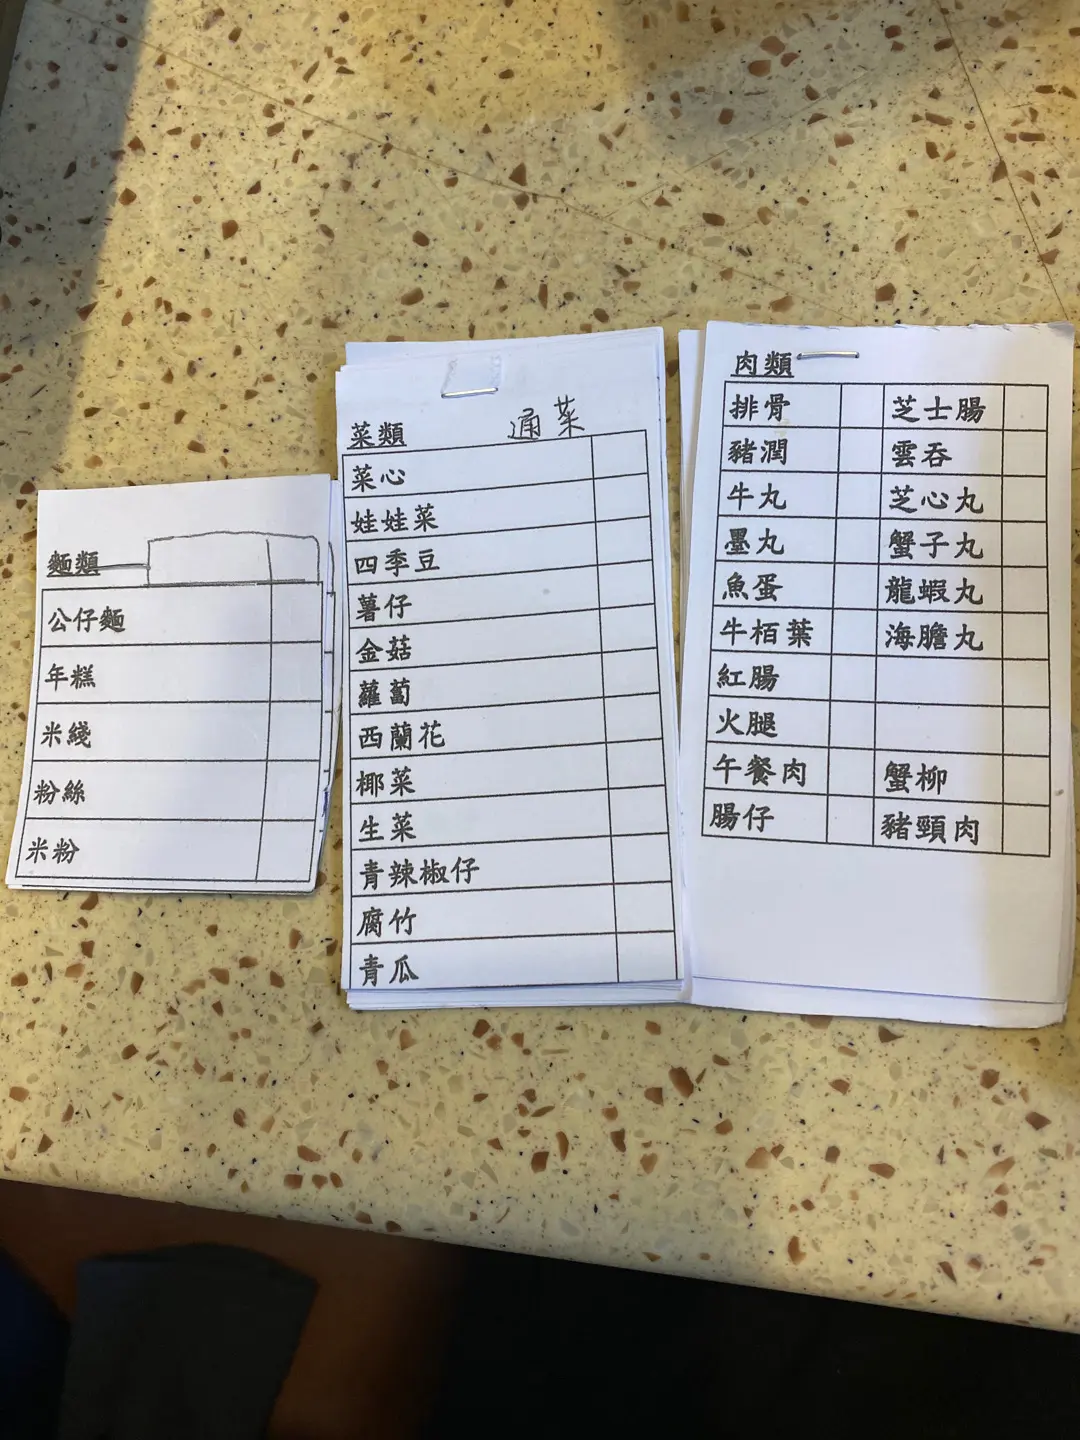 麵類
公仔麵
年糕
米綫
粉絲
米粉
菜類 通菜
菜心
娃娃菜
四季豆
薯仔
金菇
蘿蔔
西蘭花
椰菜
生菜
青辣椒仔
腐竹
青瓜
肉類
排骨 芝士腸
豬潤 雲吞
牛丸 芝心丸
墨丸 蟹子丸
魚蛋 龍蝦丸
牛栢葉 海膽丸
紅腸
火腿
午餐肉 蟹柳
腸仔 豬頸肉